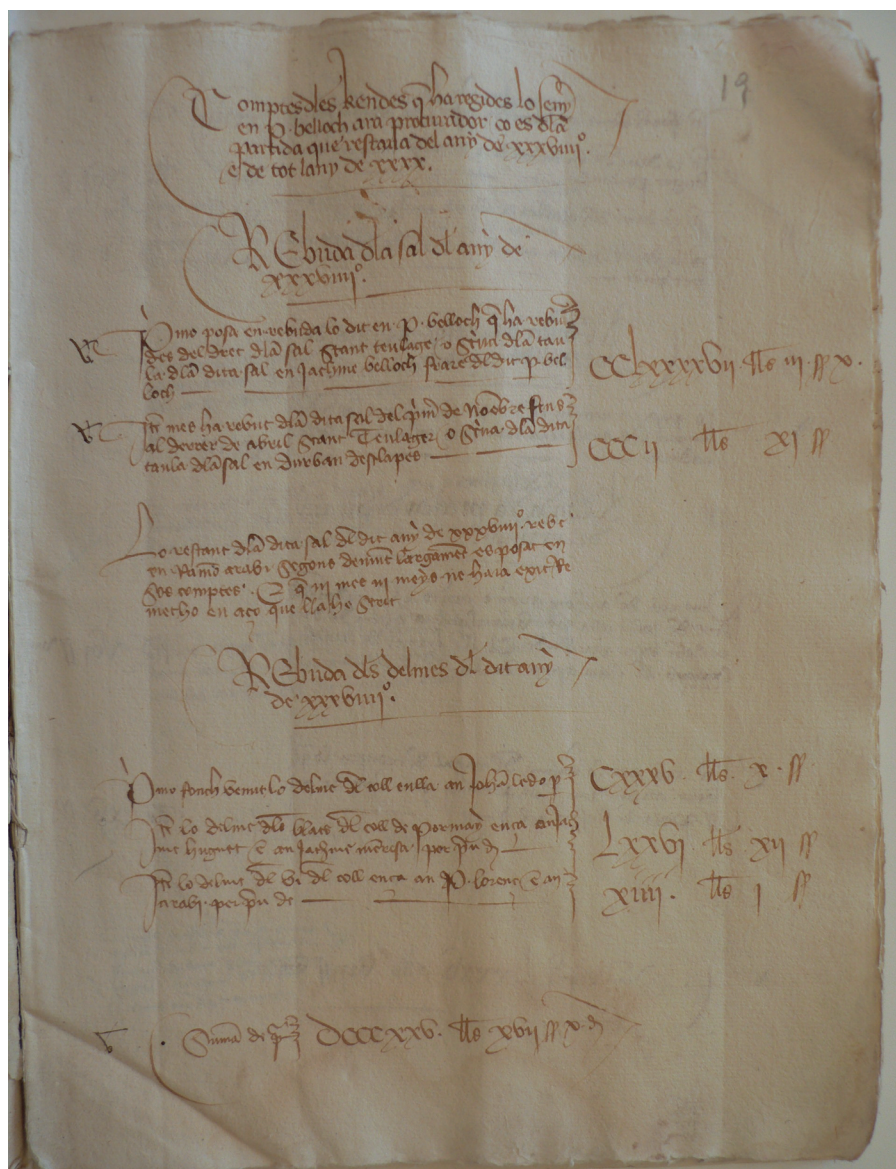 19
Comptes dles Rendes q̄ ha regides lo seny
en P. belloch ara procurador ço es dla
partida que restaua del any de xxxviiiiº.
e de tot lany de xxxx.
REbuda dla sal dl any de
xxxviiiiº.
Pmo posa en rebuda lo dit en P. belloch q̄ ha rebu
des del dret dla sal stant teulage o scriua dla tau
la dla dita sal en Jachme belloch frare dl dit p. bel
loch
CClxxxxvii. lls iii. ss x.
Itē mes ha rebut dla dita sal del pim̄ de Noēbre fins
al derrer de abril stant Teulager o scriua dla dita
taula dla sal en durban desclapes
CCCii lls xi ss
Lo restant dla dita sal dl dit any de xxxviiiiº. rebe
en Ramō arabi segons demūt largamēt es posat en
sos comptes. E q̄ ni mes ni meys ne haia exit Re
metho en aço que lla he scrit
REbuda dls delmes dl dit any
de xxxviiiiº.
Pmo fonch venut lo delme dl coll enlla an Johā ledo p
Cxxxv. lls. x. ss
Itē lo delme dls blats dl coll de pormany ença an Ja
me huguet e an Jachme merifa por preu d
Lxxvi lls xii ss
Itē lo delme dl vi dl coll ença an P. lorenç e an
arabi. per preu de
xiiii. lls i ss
Sumā de DCCCxxv. lls xvii ss x d